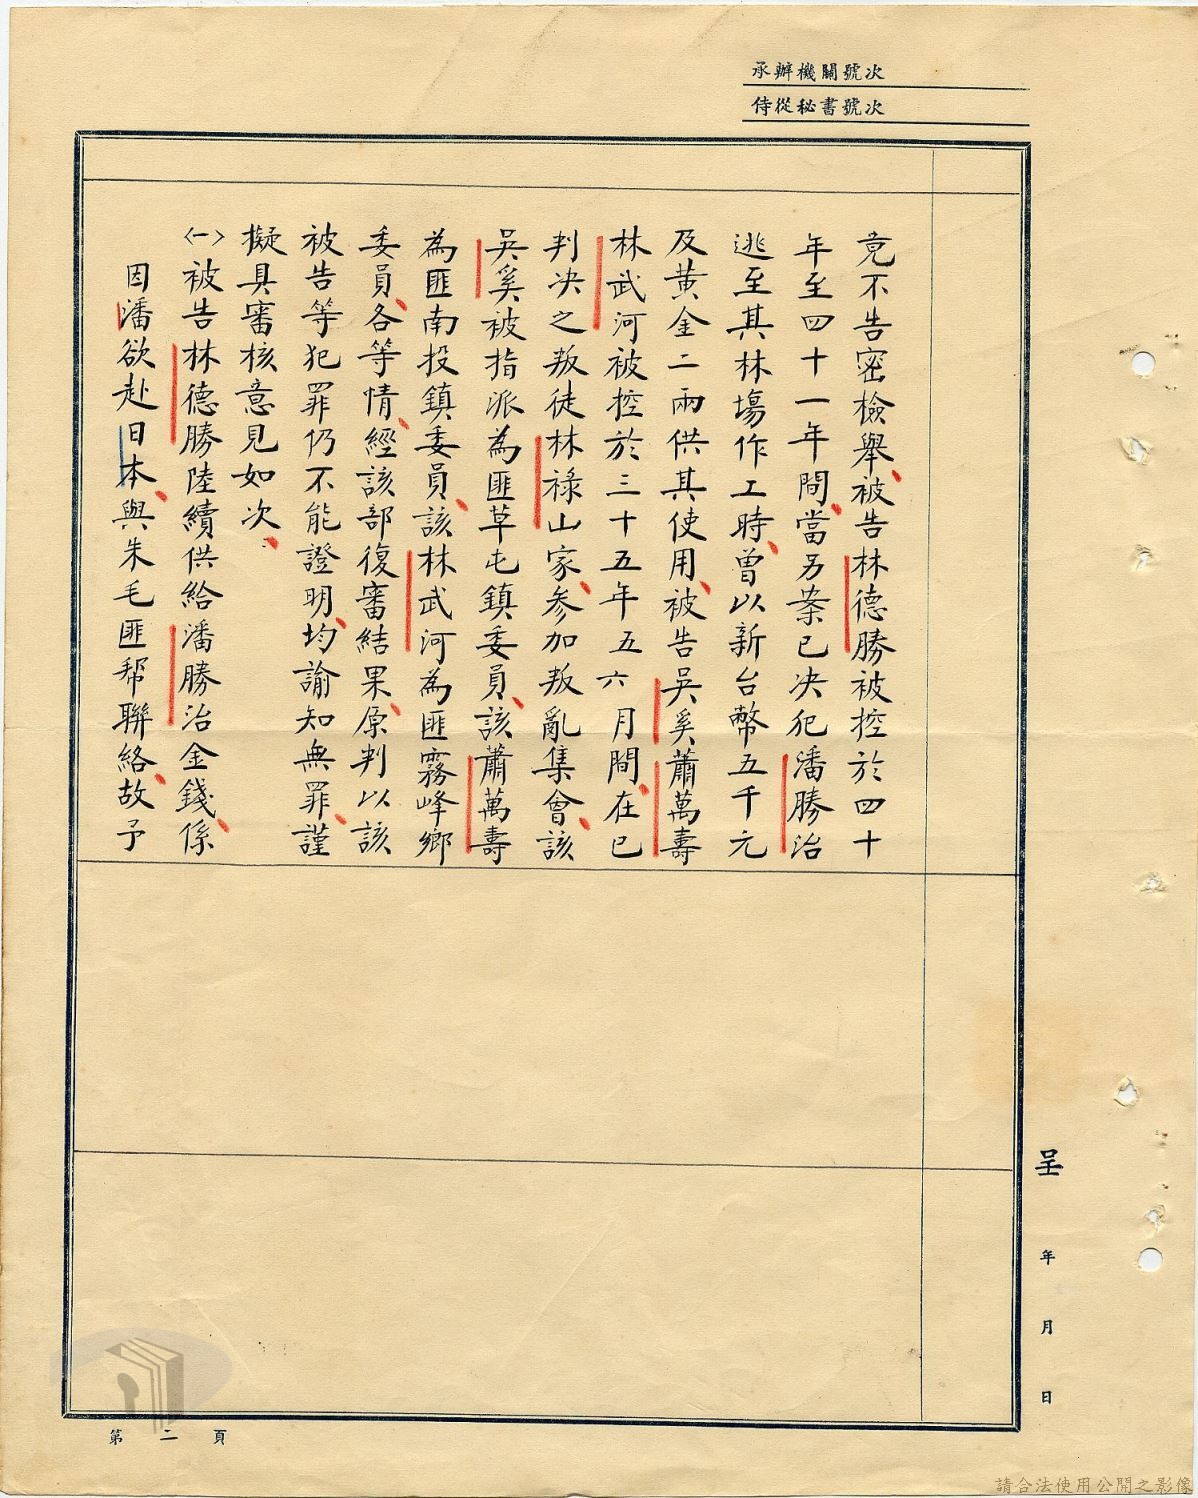 承辦機關號次
侍從秘書號次
竟不告密檢舉、被告林德勝被控於四十
年至四十一年間、當另案已决犯潘勝治
逃至其林場作工時、曾以新台幣五千元
及黃金二兩供其使用、被告吳奚蕭萬壽
林武河被控於三十五年五六月間、在已
判决之叛徒林祿山家、參加叛亂集會、該
吳奚被指派為匪草屯鎮委員、該蕭萬壽
為匪南投鎮委員、該林武河為匪霧峰鄉
委員、各等情、經該部復審結果、原判以該
被告等犯罪仍不能證明、均諭知無罪、謹
擬具審核意見如次、
〈一〉被告林德勝陸續供給潘勝治金錢、係
因潘欲赴日本、與朱毛匪幫聯絡、故予
呈
年
月
日
第二頁
請合法使用公開之影像